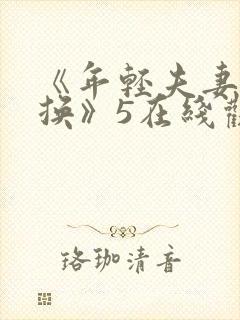 《年轻夫妻
换》5在线
珞珈清音